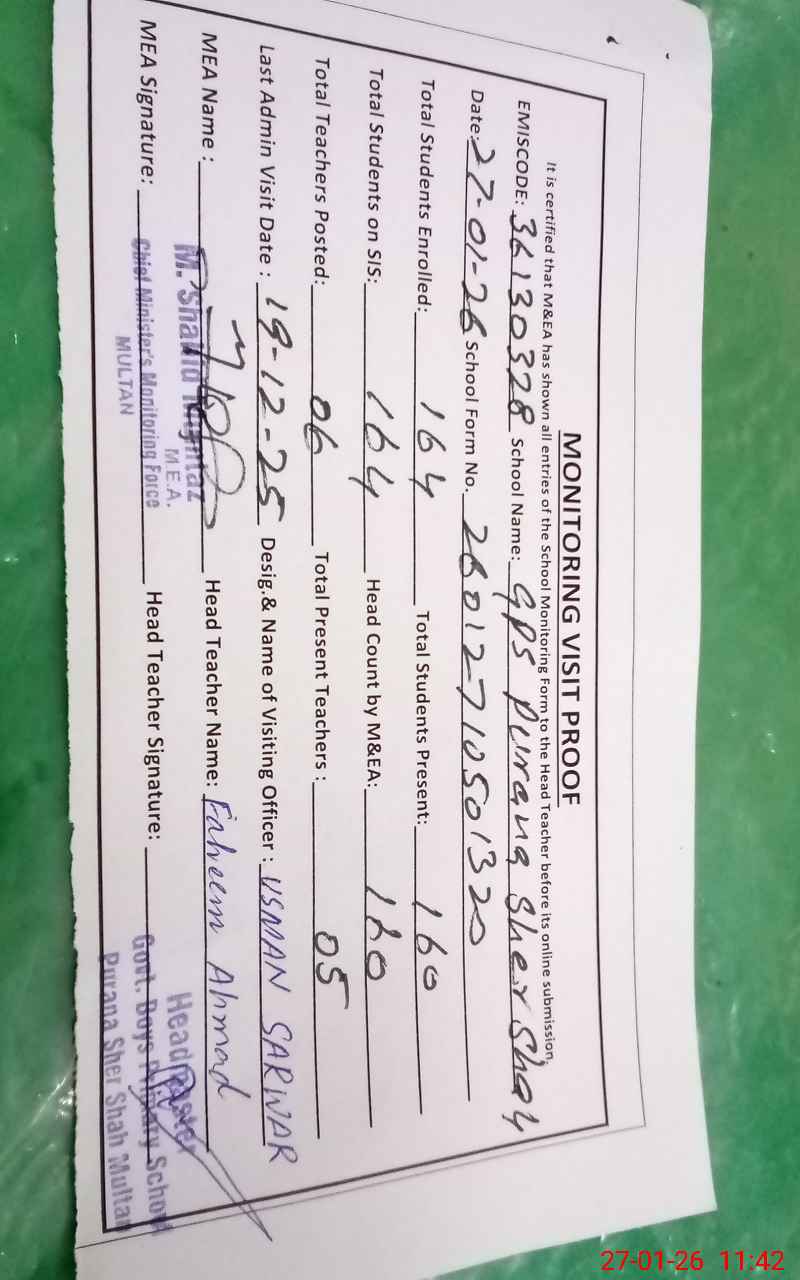 MONITORING VISIT PROOF
It is certified that M&EA has shown all entries of the School Monitoring Form to the Head Teacher before its online submission.
EMISCODE: 36130328 School Name: GPS Purana Sher Shah
Date: 27-01-26 School Form No. 26012710501320
Total Students Enrolled: 164 Total Students Present: 160
Total Students on SIS: 164 Head Count by M&EA: 160
Total Teachers Posted: 06 Total Present Teachers : 05
Last Admin Visit Date : 19-12-25 Desig.& Name of Visiting Officer : USMAN SARWAR
MEA Name : Head Teacher Name: Faheem Ahmad
M. Shahid Mumtaz
M.E.A.
Headmaster
MEA Signature: Head Teacher Signature:
Chief Minister's Monitoring Force
MULTAN
Govt. Boys Primary School
Purana Sher Shah Multan
27-01-26 11:42